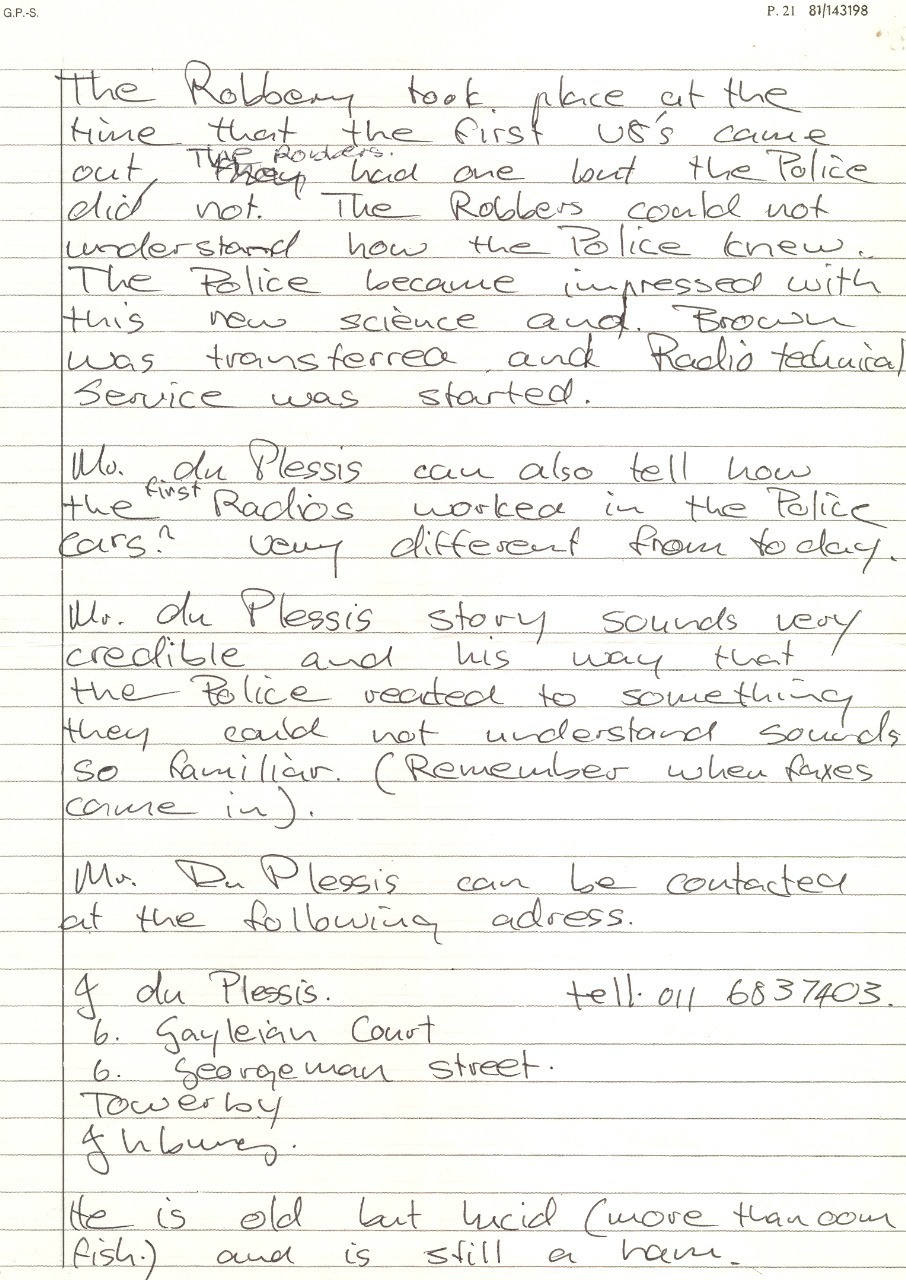 G.P.-S.
P. 21 81/143198
The Robbery took place at the
time that the first V8's came
The Robbers.
out, They had one but the Police
did not. The Robbers could not
understand how the Police knew.
The Police became impressed with
this new science and. Brown
was transferred and Radio technical
Service was started.
Mr. du Plessis can also tell how
first
the Radios worked in the Police
cars? very different from today.
Mr. du Plessis story sounds very
credible and his way that
the Police reacted to something
they could not understand sounds
so familiar. (Remember when faxes
came in).
Mr. Du Plessis can be contacted
at the following adress.
J du Plessis. tell. 011 6837403.
6. Gayleian Court
6. Georgeman street.
Towerby
Jhburg.
He is old but lucid (more than oom
fish.) and is still a ham.